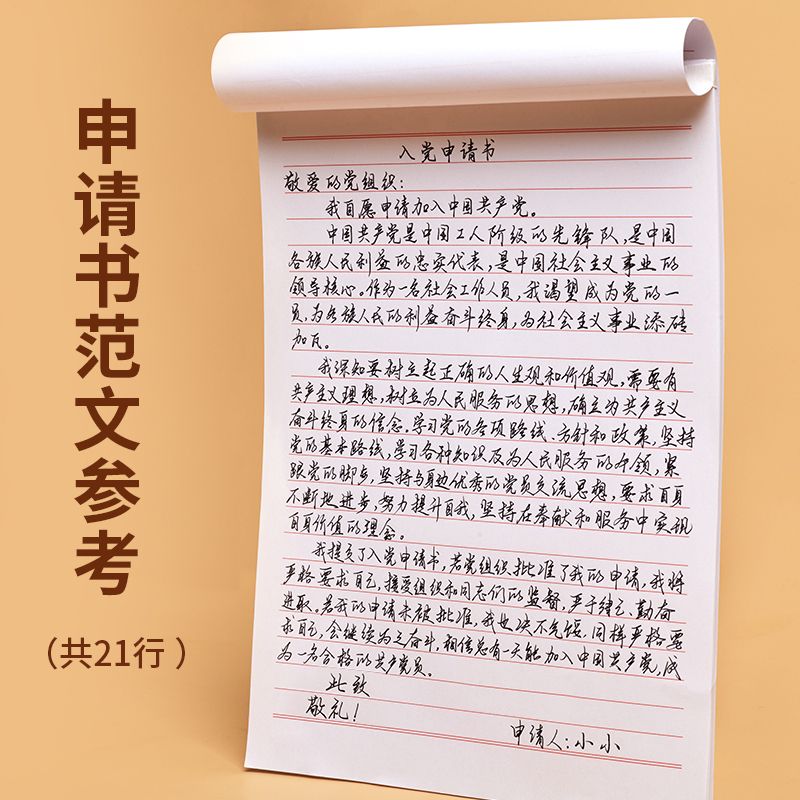 申请书范文参考
（共21行）
入党申请书
敬爱的党组织：
我自愿申请加入中国共产党。
中国共产党是中国工人阶级的先锋队，是中国
各族人民利益的忠实代表，是中国社会主义事业的
领导核心。作为一名社会工作人员，我渴望成为党的一
员，为各族人民的利益奋斗终身，为社会主义事业添砖
加瓦。
我深知要树立起正确的人生观和价值观，需要有
共产主义理想，树立为人民服务的思想，确立为共产主义
奋斗终身的信念。学习党的各项路线、方针和政策，坚持
党的基本路线，学习各种知识及为人民服务的本领，紧
跟党的脚步，坚持与身边优秀的党员交流思想，要求自身
不断地进步，努力提升自我，坚持在奉献和服务中实现
自身价值的理念。
我提交了入党申请书，若党组织批准了我的申请，我将
严格要求自己，接受组织和同志们的监督，严于律己，勤奋
进取。若我的申请未被批准，我也决不气馁，同样严格要
求自己，会继续为之奋斗，相信总有一天能加入中国共产党，成
为一名合格的共产党员。
此致
敬礼！
申请人：小小